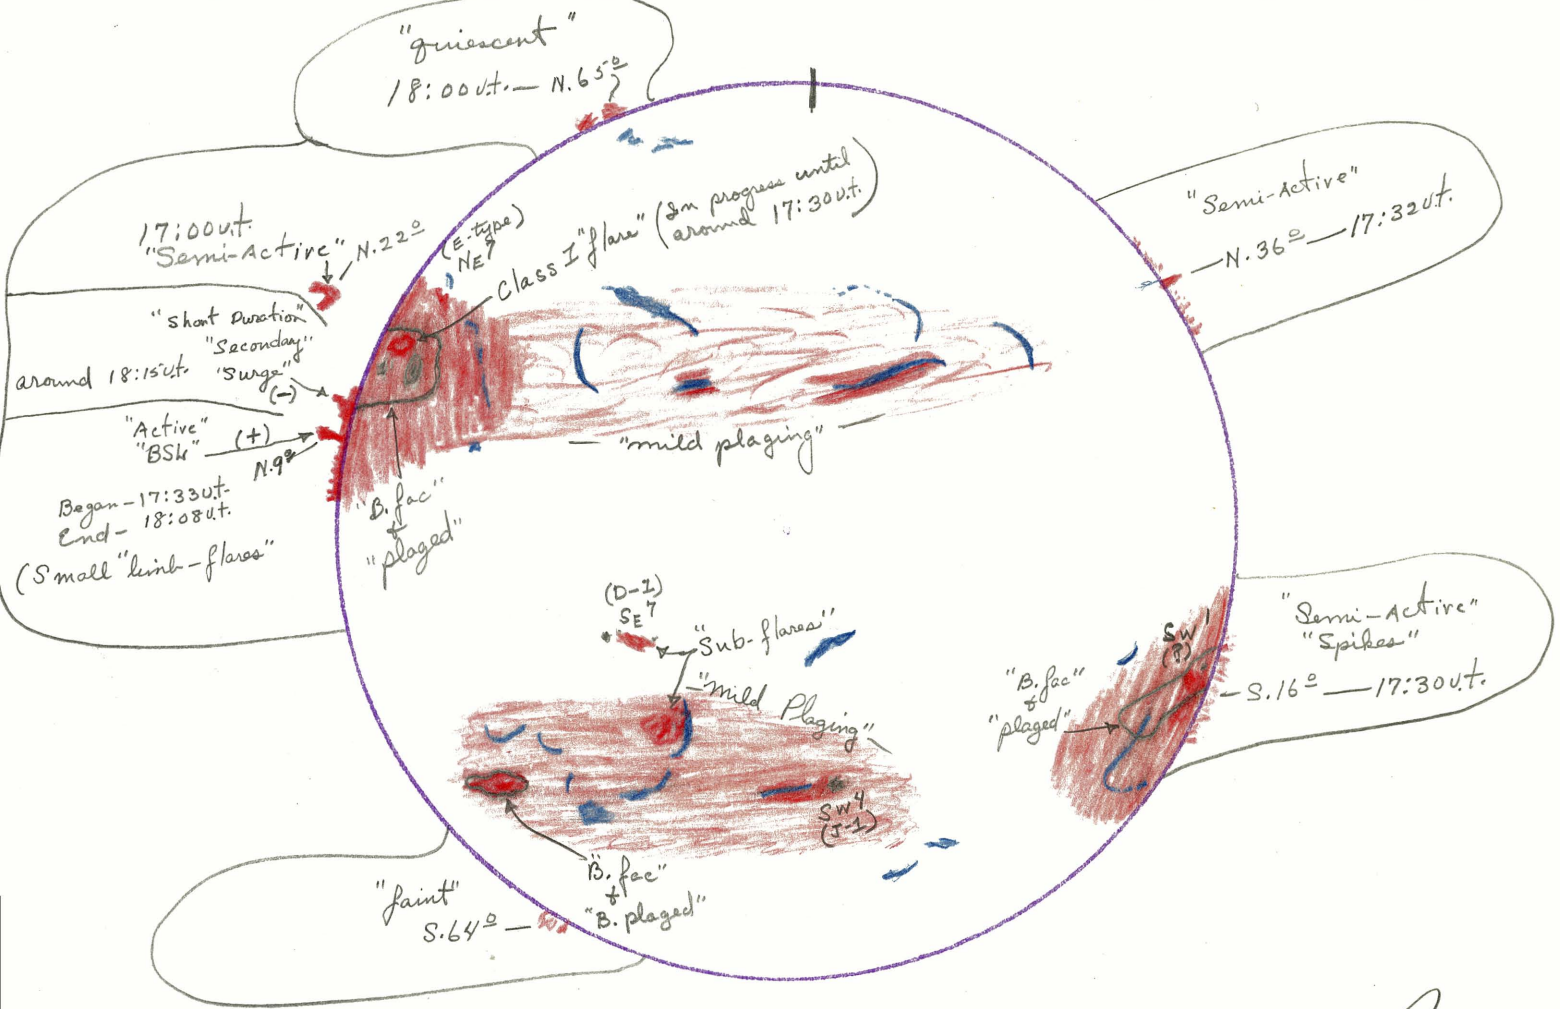 "quiescent"
18:00u.t. — N.65º
17:00u.t.
"Semi-Active"
N.22º
(E-type)
NE9
Class I "flare" (In progress until
around 17:30u.t.)
"Semi-Active"
N.36º — 17:32u.t.
"Short Duration"
"Seconday"
"Surge"
around 18:15u.t.
(-)
"Active"
"BSL"
(+)
N.9º
Began - 17:33u.t.
End - 18:08u.t.
(Small "limb-flares"
— "mild plaging" —
"B.fac"
+
"plaged"
(D-1)
SE7
"Sub-flares"
"Mild Plaging"
SW1
(?)
"B.fac"
+
"plaged"
"Semi-Active"
"Spikes"
S.16º — 17:30u.t.
SW4
(J-1)
"B.fac"
+
"B.plaged"
"faint"
S.64º —